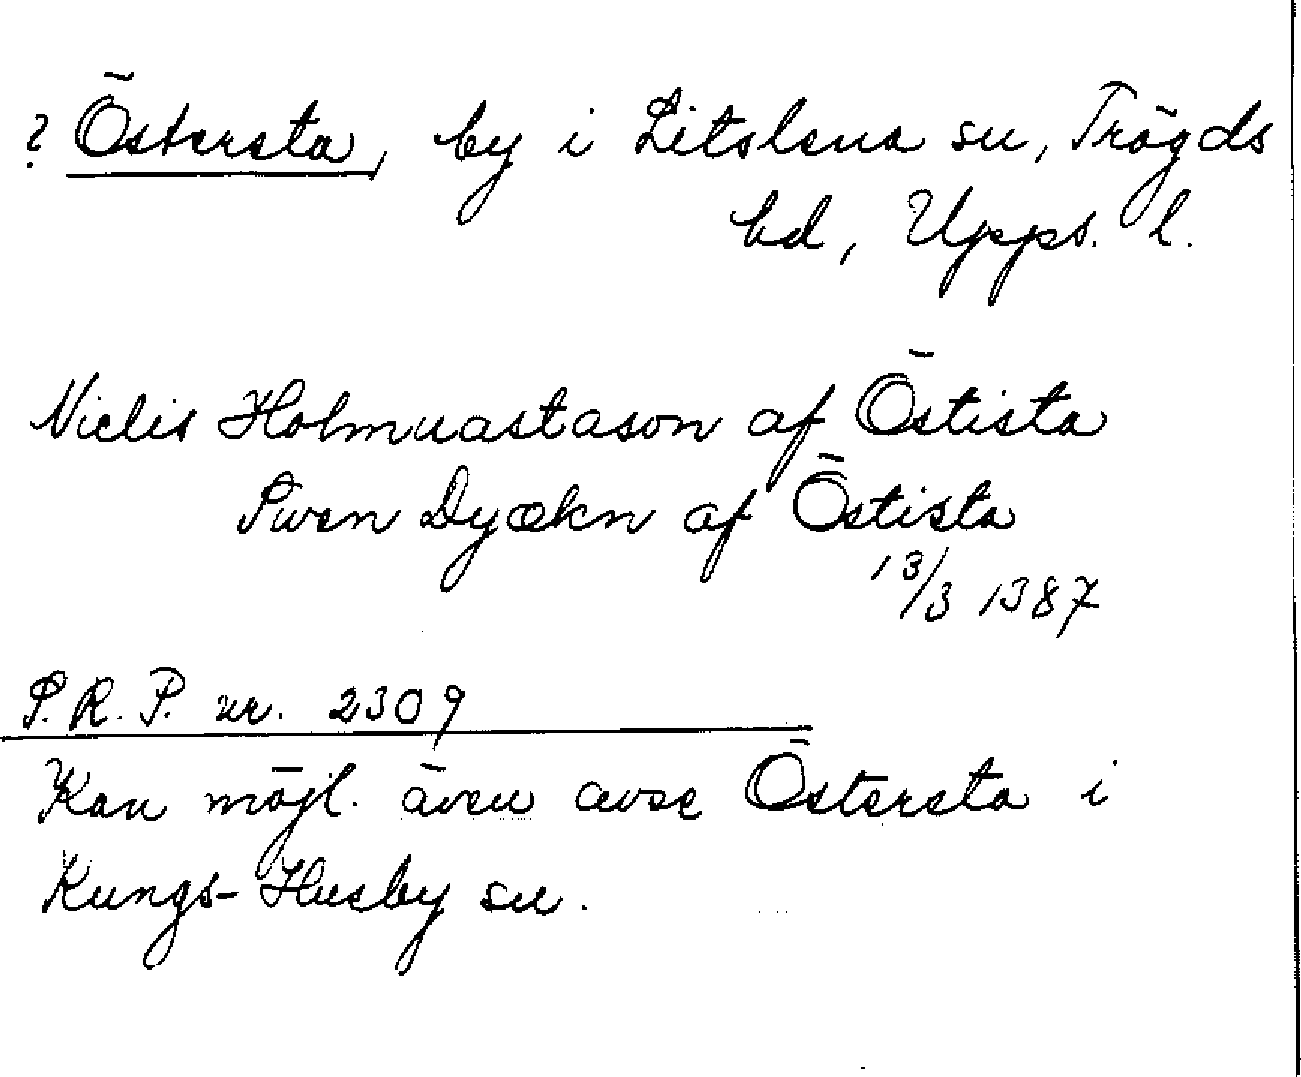 ? Östersta, by i Litslena sn, Trögds
hd, Upps. l.
Niclis Holmnastason af Östista
Swen Dyækn af Östista
13/3 1387
S.R.P. nr. 2309
Kan möjl. även avse Östersta i
Kungs-Husby sn.